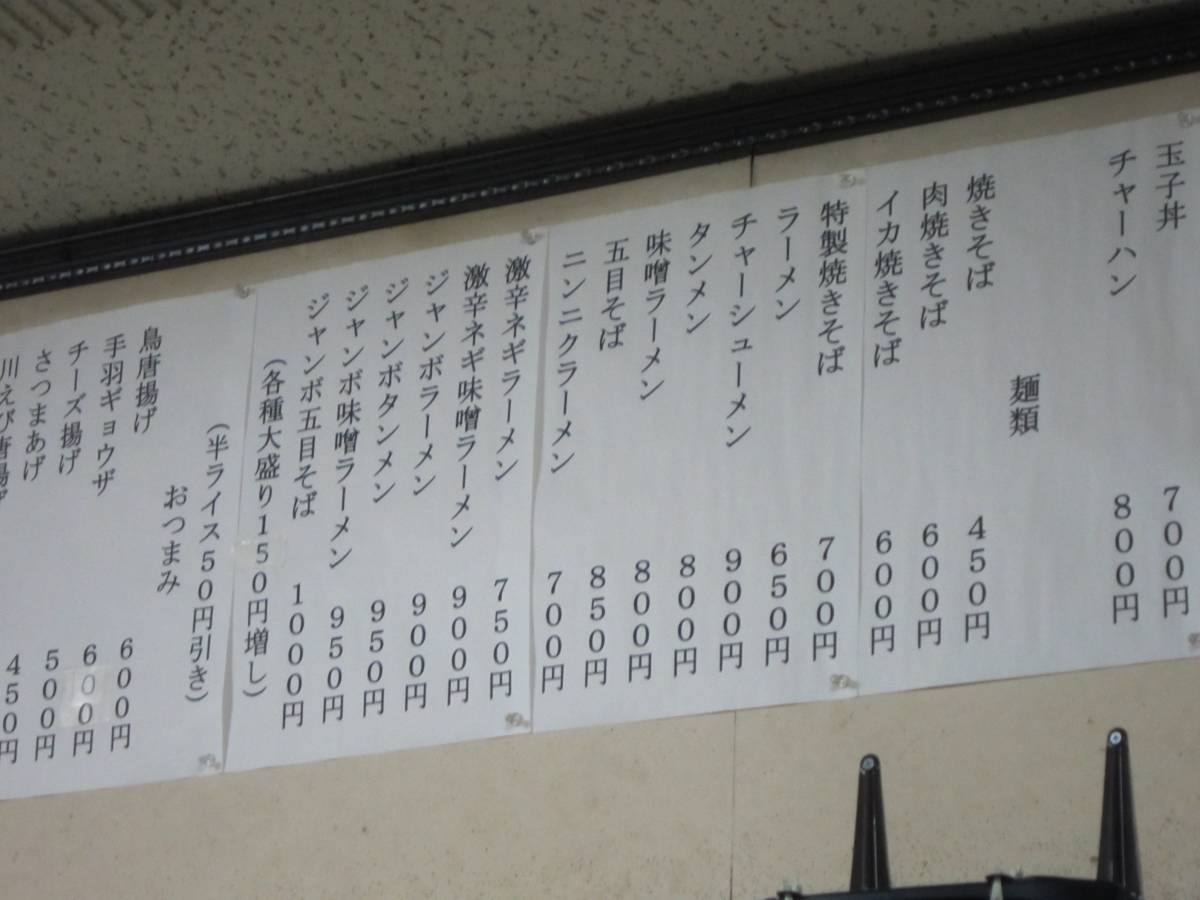 玉子丼 700円
チャーハン 800円
麺類
焼きそば 450円
肉焼きそば 600円
イカ焼きそば 600円
特製焼きそば 700円
ラーメン 650円
チャーシューメン 900円
タンメン 800円
味噌ラーメン 800円
五目そば 850円
ニンニクラーメン 700円
激辛ネギラーメン 750円
激辛ネギ味噌ラーメン 900円
ジャンボラーメン 900円
ジャンボタンメン 950円
ジャンボ味噌ラーメン 950円
ジャンボ五目そば 1000円
（各種大盛り150円増し）
（半ライス50円引き）
おつまみ
鳥唐揚げ 600円
手羽ギョウザ 600円
チーズ揚げ 500円
さつまあげ 450円
川えび唐揚げ